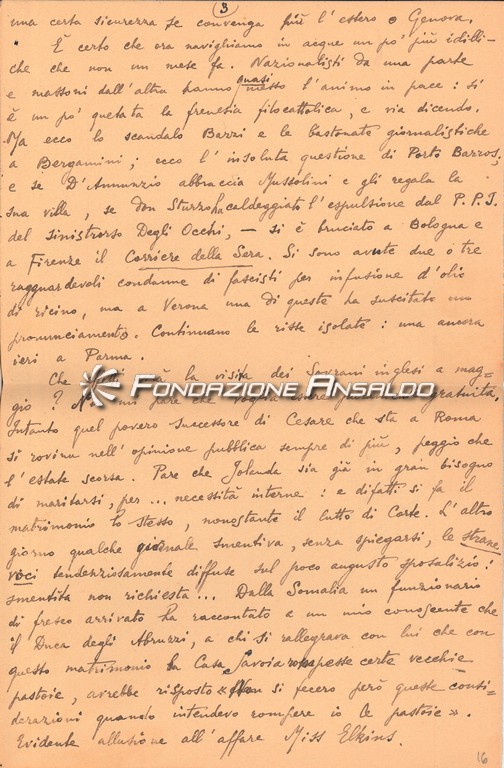 3
una certa sicurezza se convenga più l'estero o Genova.
È certo che ora navighiamo in acque un po' più idilli-
che che non un mese fa. Nazionalisti da una parte
e massoni dall'altra hanno quasi messo l'animo in pace: si
è un po' quetata la frenesia filocattolica, e via dicendo.
Ma ecco lo scandalo Bazzi e le bastonate giornalistiche
a Bergamini; ecco l'insoluta questione di Porto Barros,
e se D'Annunzio abbraccia Mussolini e gli regala la
sua villa, se don Sturzo ha caldeggiato l'espulsione dal P.P.I.
del sinistrorso Degli Occhi, — si è bruciato a Bologna e
a Firenze il Corriere della Sera. Si sono avute due o tre
ragguardevoli condanne di fascisti per infusione d'olio
di ricino, ma a Verona una di queste ha suscitato un
pronunciamento. Continuano le risse isolate: una ancora
ieri a Parma.
Che la visita dei Sovrani inglesi a mag-
gio? mi pare che gratuita.
Intanto quel povero successore di Cesare che sta a Roma
si rovina nell'opinione pubblica sempre di più, peggio che
l'estate scorsa. Pare che Jolanda sia già in gran bisogno
di maritarsi, per ... necessità interne: e difatti si fa il
matrimonio lo stesso, nonostante il lutto di Corte. L'altro
giorno qualche giornale smentiva, senza spiegarsi, le strane
voci tendenziosamente diffuse sul poco augusto sposalizio:
smentita non richiesta... Dalla Somalia un funzionario
di fresco arrivato ha raccontato a un mio conoscente che
il Duca degli Abruzzi, a chi si rallegrava con lui che con
questo matrimonio la Casa Savoia rompesse certe vecchie
pastoie, avrebbe risposto «Non si fecero però queste consi-
derazioni quando intendevo rompere io le pastoie».
Evidente allusione all'affare Miss Elkins.
16
FONDAZIONE ANSALDO